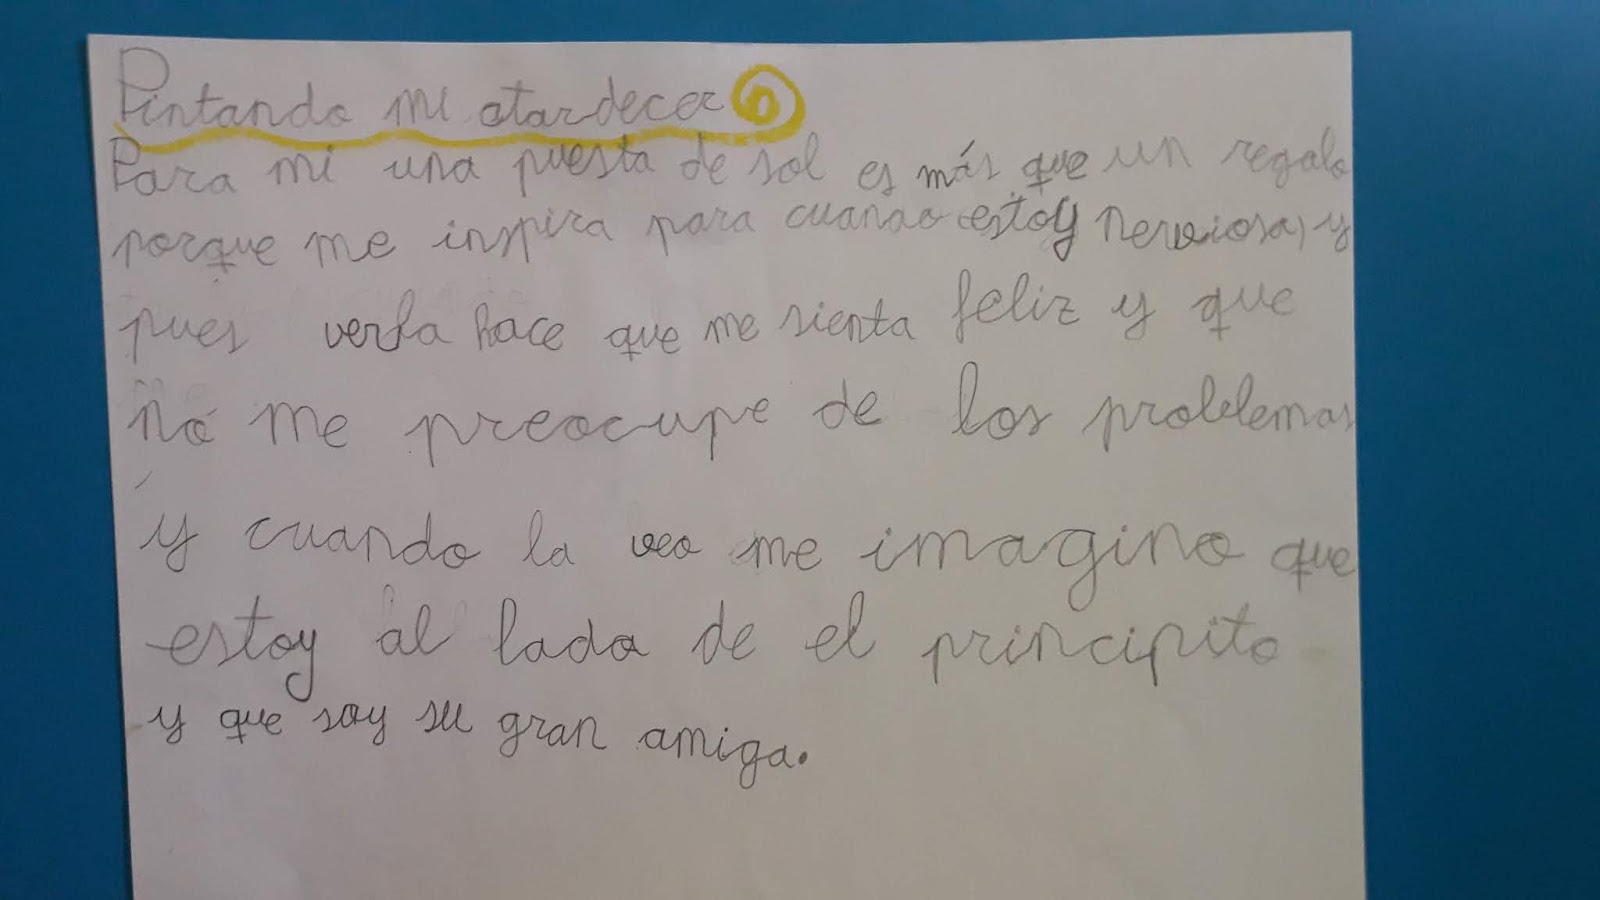 Pintando mi atardecer
Para mi una puesta de sol es más que un regalo
porque me inspira para cuando estoy nerviosa, y
pues verla hace que me sienta feliz y que
no me preocupe de los problemas
y cuando la veo me imagino que
estoy al lado de el principito
y que soy su gran amiga.